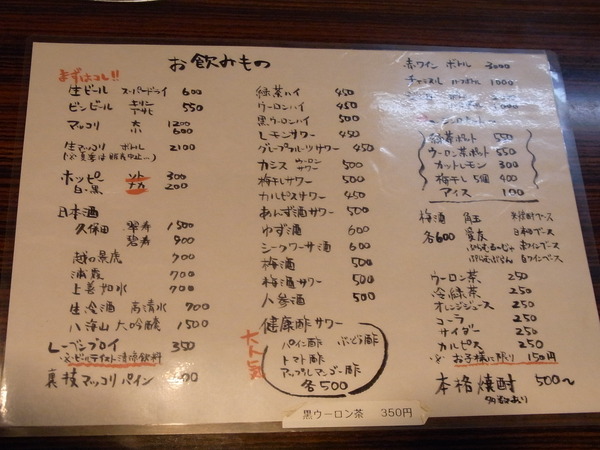 お飲みもの
まずはコレ!!
生ビール スーパードライ 600
ビンビール キリン アサヒ 550
マッコリ 大 1200
小 600
生マッコリ ボトル 2100
ホッピー ソト 300
白・黒 ナカ 200
日本酒
久保田 翠寿 1500
碧寿 900
越の景虎 700
浦霞 700
上善如水 700
生冷酒 高清水 900
八海山 大吟醸 1500
レーベンブロイ 350
※ビールテイスト清涼飲料
裏技マッコリ パイン
緑茶ハイ 450
ウーロンハイ 450
黒ウーロンハイ 500
レモンサワー 450
グレープフルーツサワー 450
カシス ウーロン サワー 500
梅干しサワー 500
カルピスサワー 450
あんず酒サワー 500
ゆず酒 600
シークワーサ酒 600
梅酒 500
梅酒サワー 500
人参酒 500
大人気
健康酢サワー
パイン酢 ぶどう酢
トマト酢
アップルマンゴー酢
各500
赤ワイン ボトル 3000
チャミスル ハーフボトル 1000
緑茶ポット 550
ウーロン茶ポット 550
カットレモン 300
梅干し5個 400
アイス 100
梅酒
各600
米焼酎ベース
日本酒ベース
赤ワインベース
白ワインベース
ウーロン茶 250
冷緑茶 250
オレンジジュース 250
コーラ 250
サイダー 250
カルピス 250
※お子様に限り 150円
本格焼酎 500〜
多数あり
黒ウーロン茶 350円